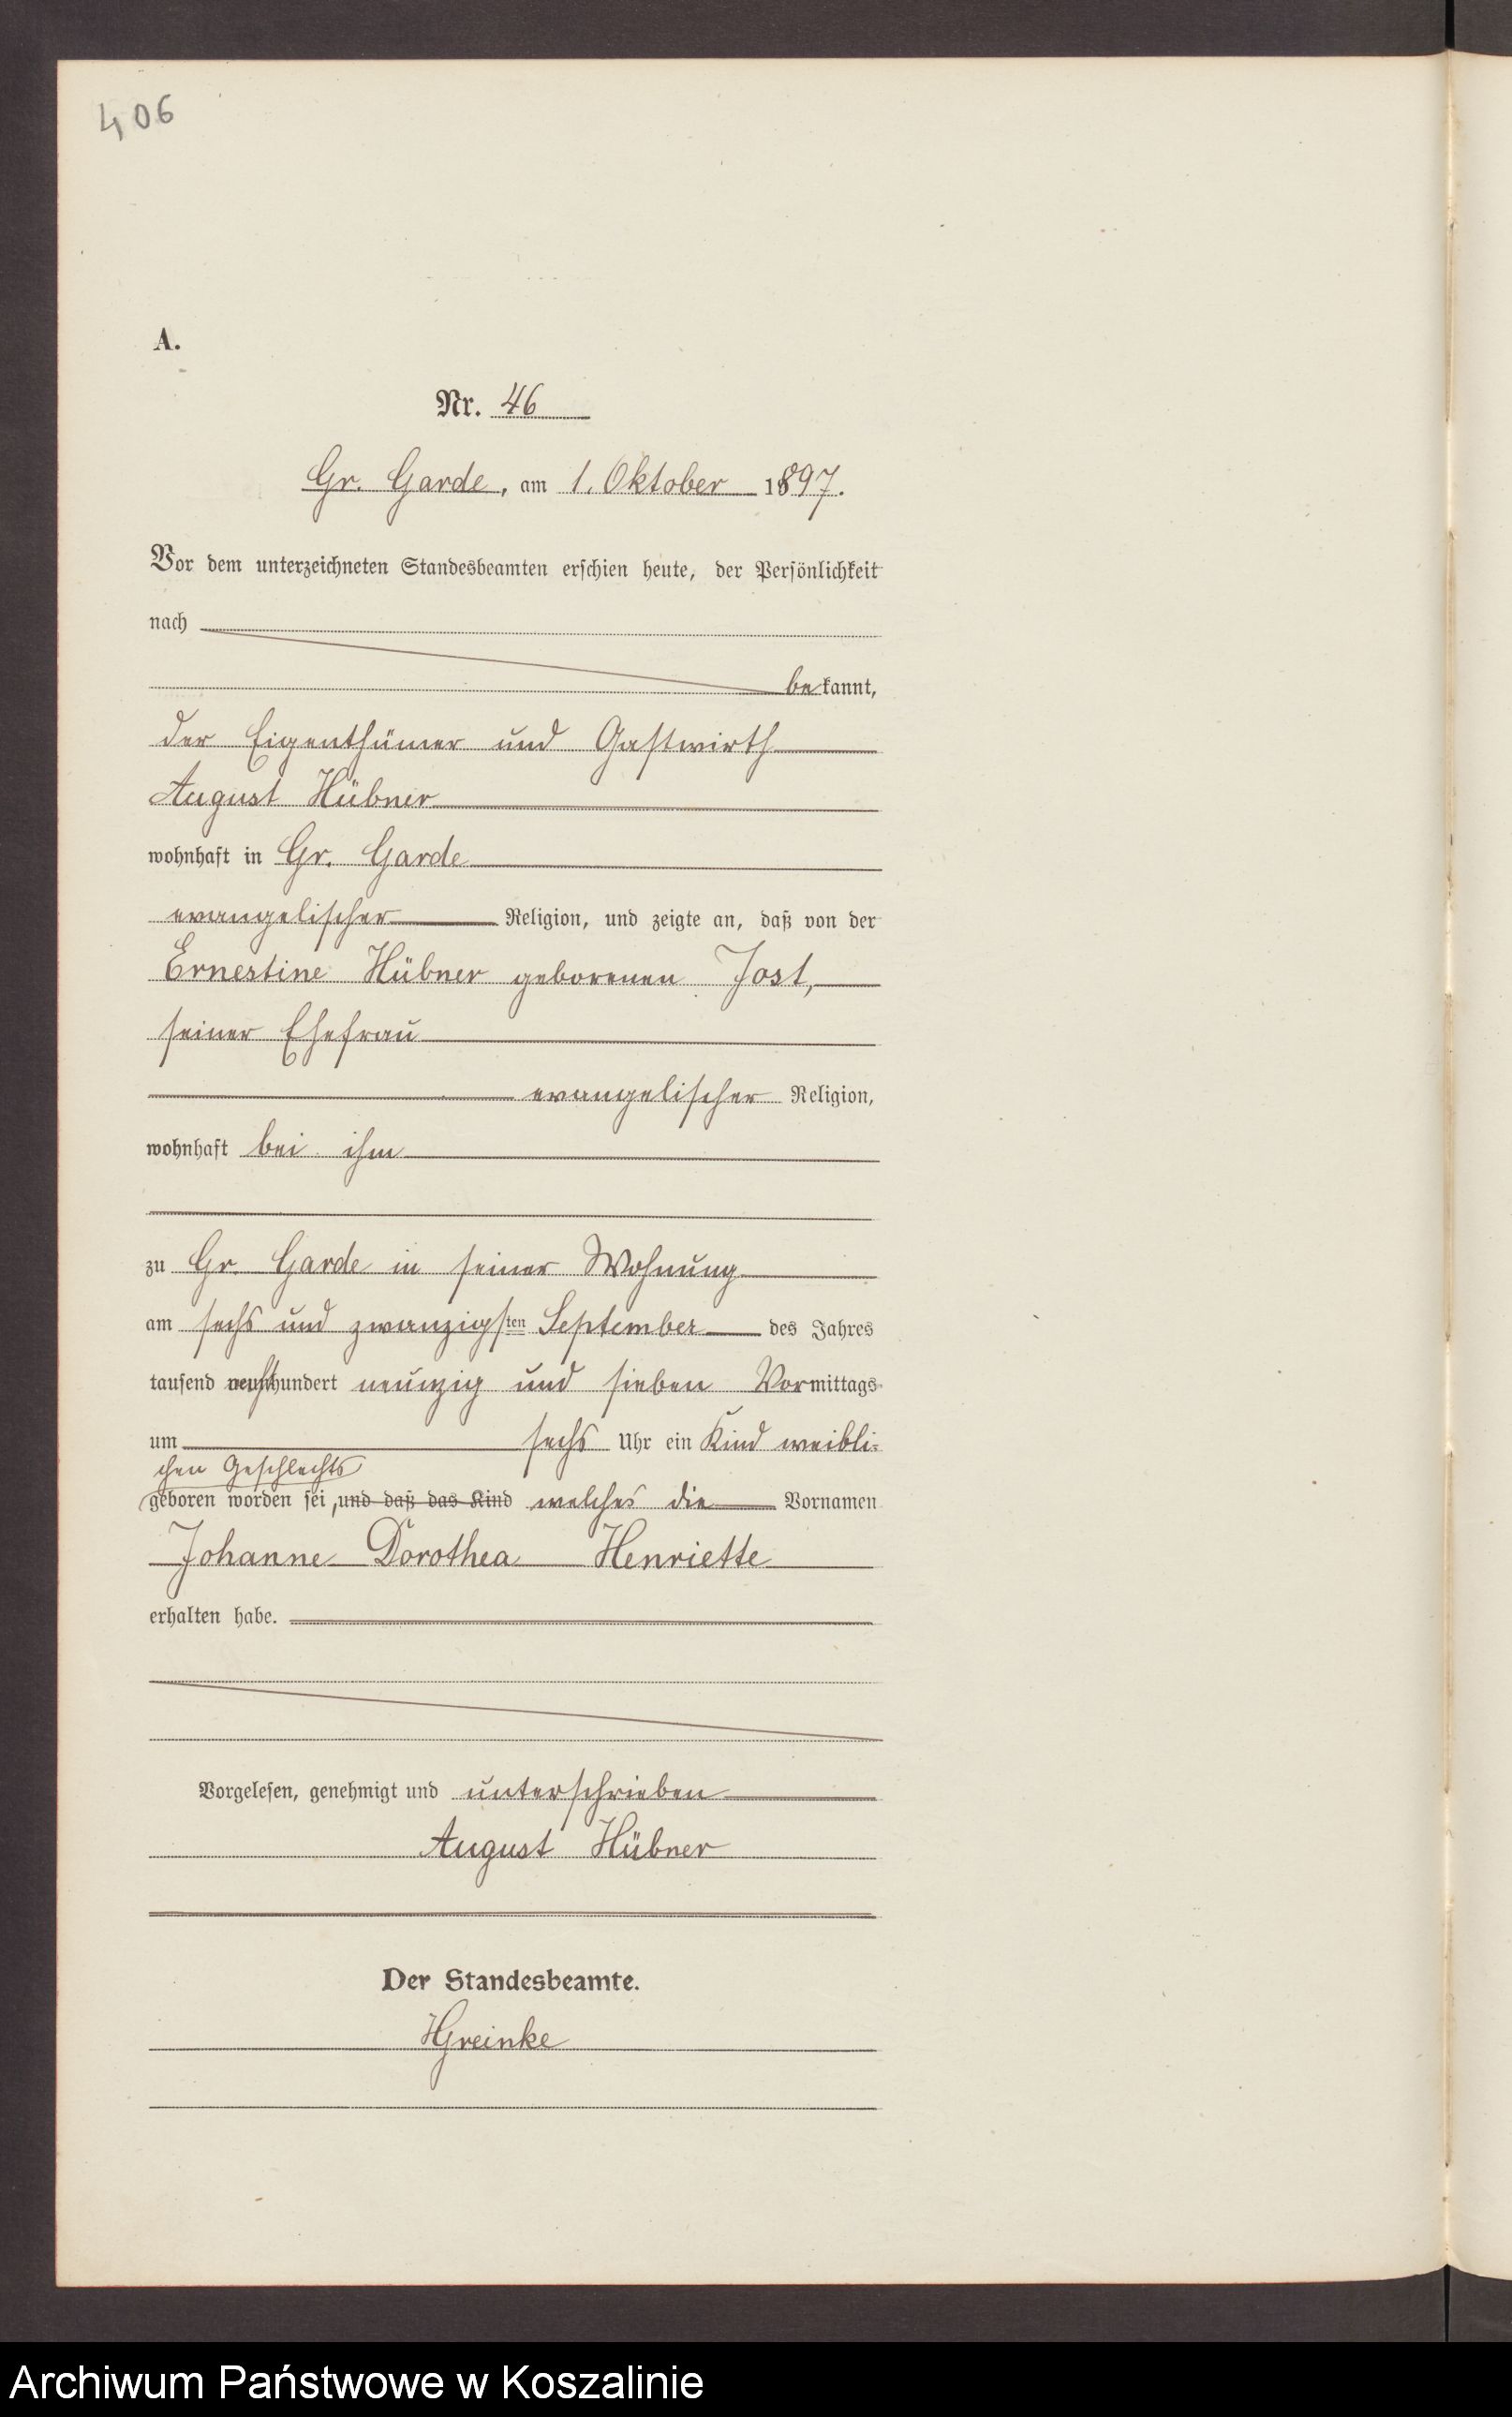 406
A.
Nr. 46
Gr. Garde, am 1. Oktober 1897.
Vor dem unterzeichneten Standesbeamten erschien heute, der Persönlichkeit
nach
bekannt,
der Eigenthümer und Gastwirth
August Hübner
wohnhaft in Gr. Garde
evangelischer Religion, und zeigte an, daß von der
Ernestine Hübner geborenen Jost,
seiner Ehefrau
evangelischer Religion,
wohnhaft bei ihm
zu Gr. Garde in seiner Wohnung
am sechs und zwanzigsten September des Jahres
tausend achthundert neunzig und sieben Vormittags
um sechs Uhr ein Kind weibli-
chen Geschlechts
geboren worden sei, und daß das Kind welches die Vornamen
Johanne Dorothea Henriette
erhalten habe.
Vorgelesen, genehmigt und unterschrieben
August Hübner
Der Standesbeamte.
HGreinke
Archiwum Państwowe w Koszalinie